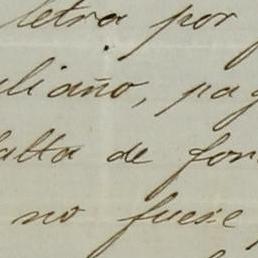 letra por
uliano, pag
falta de for
no fuese